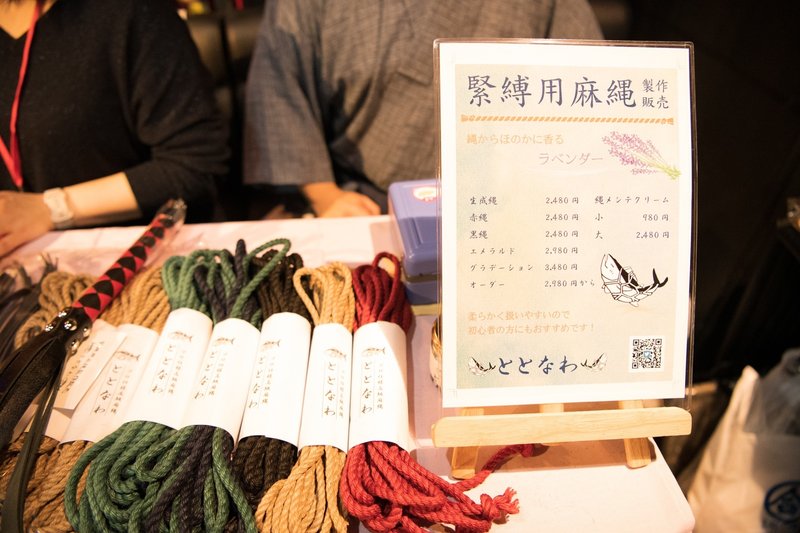 緊縛用麻縄 製作
販売
縄からほのかに香る
ラベンダー
生成縄 2,480円
赤縄 2,480円
黒縄 2,480円
エメラルド 2,980円
グラデーション 3,480円
オーダー 2,980円から
縄メンテクリーム
小 980円
大 2,480円
柔らかく扱いやすいので
初心者の方にもおすすめです!
ととなわ
ととなわ
ととなわ
ととなわ
ととなわ
ととなわ